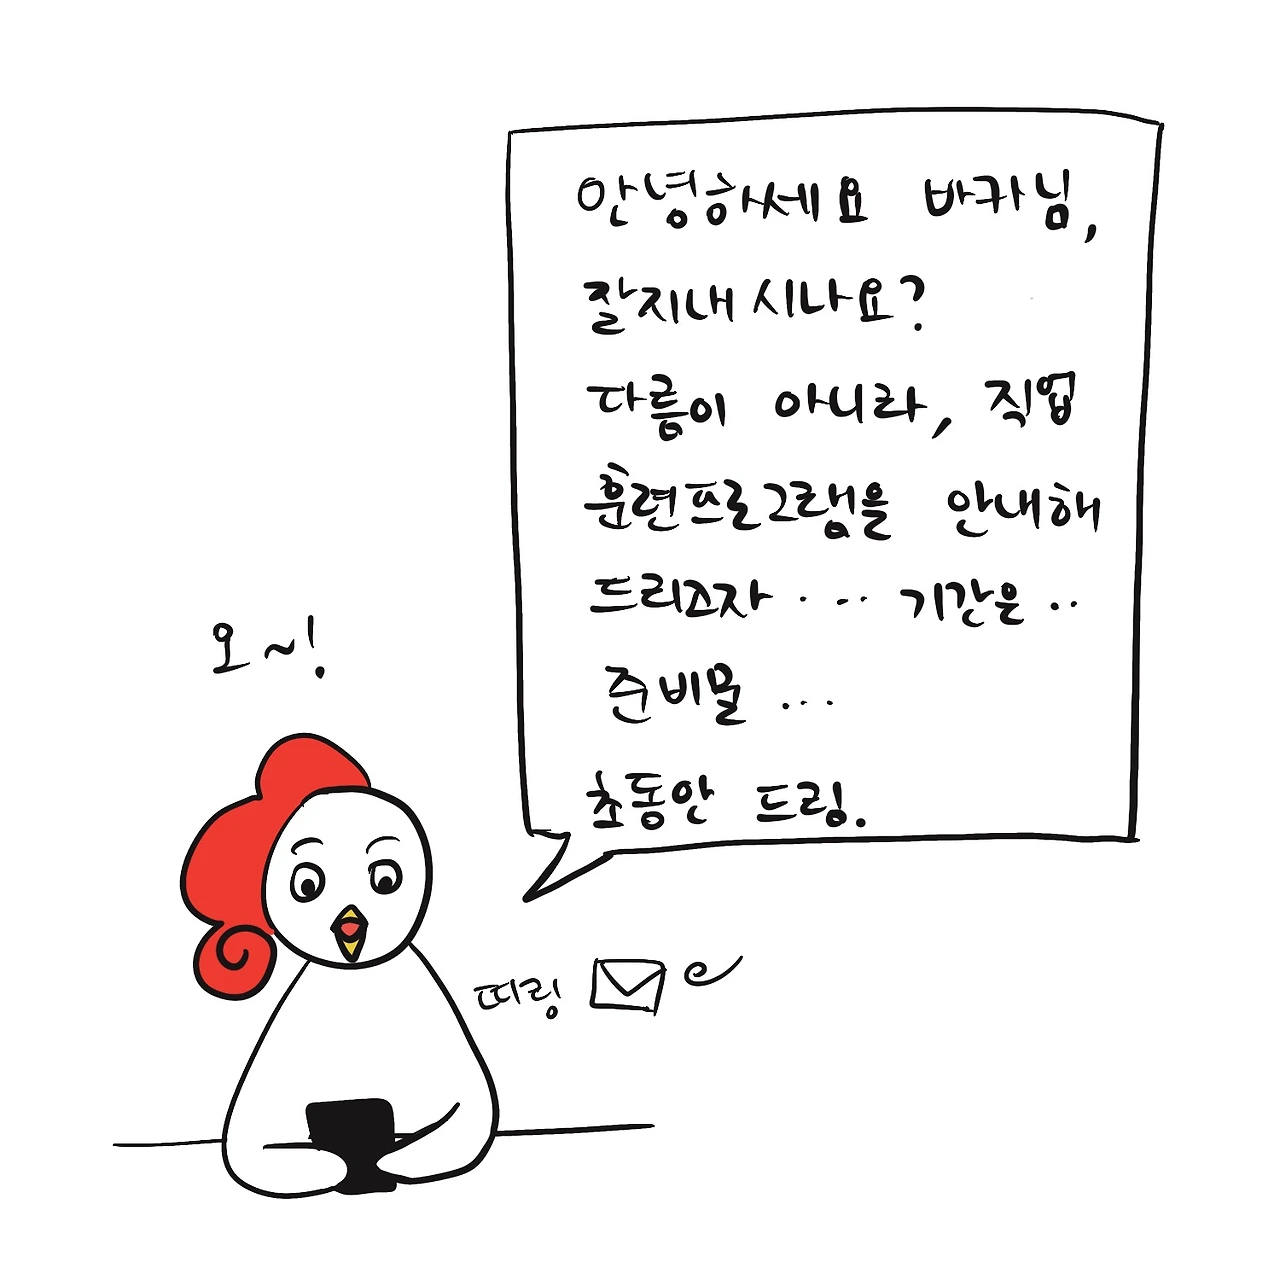 안녕하세요 바카님,
잘지내시나요?
다름이 아니라, 직업
훈련프로그램을 안내해
드리고자 .... 기간은 ..
준비물 ...
초동안 드림.
오~!
띠링